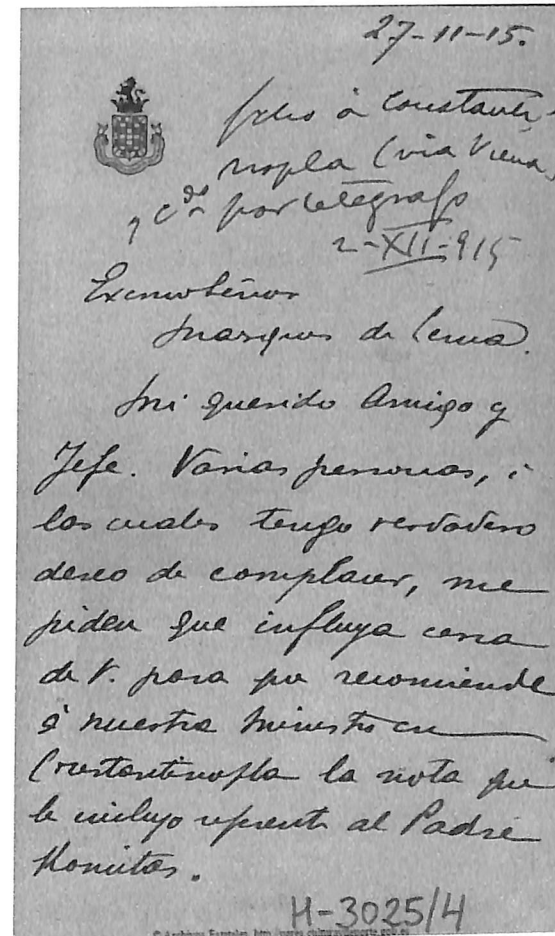 27-11-15.
á Constanti-
nopla (via Viena)
y por telégrafo
2-XII-915
Excmo Señor
Marques de Lema.
Mi querido Amigo y
Jefe. Varias personas, á
las cuales tengo verdadero
deseo de complacer, me
piden que influya cerca
de V. para que recomiende
á nuestro Ministro en
Constantinopla la nota que
le incluyo referente al Padre
Komitas.
H-3025/4
© Archivos Estatales, http://pares.culturaydeporte.gob.es